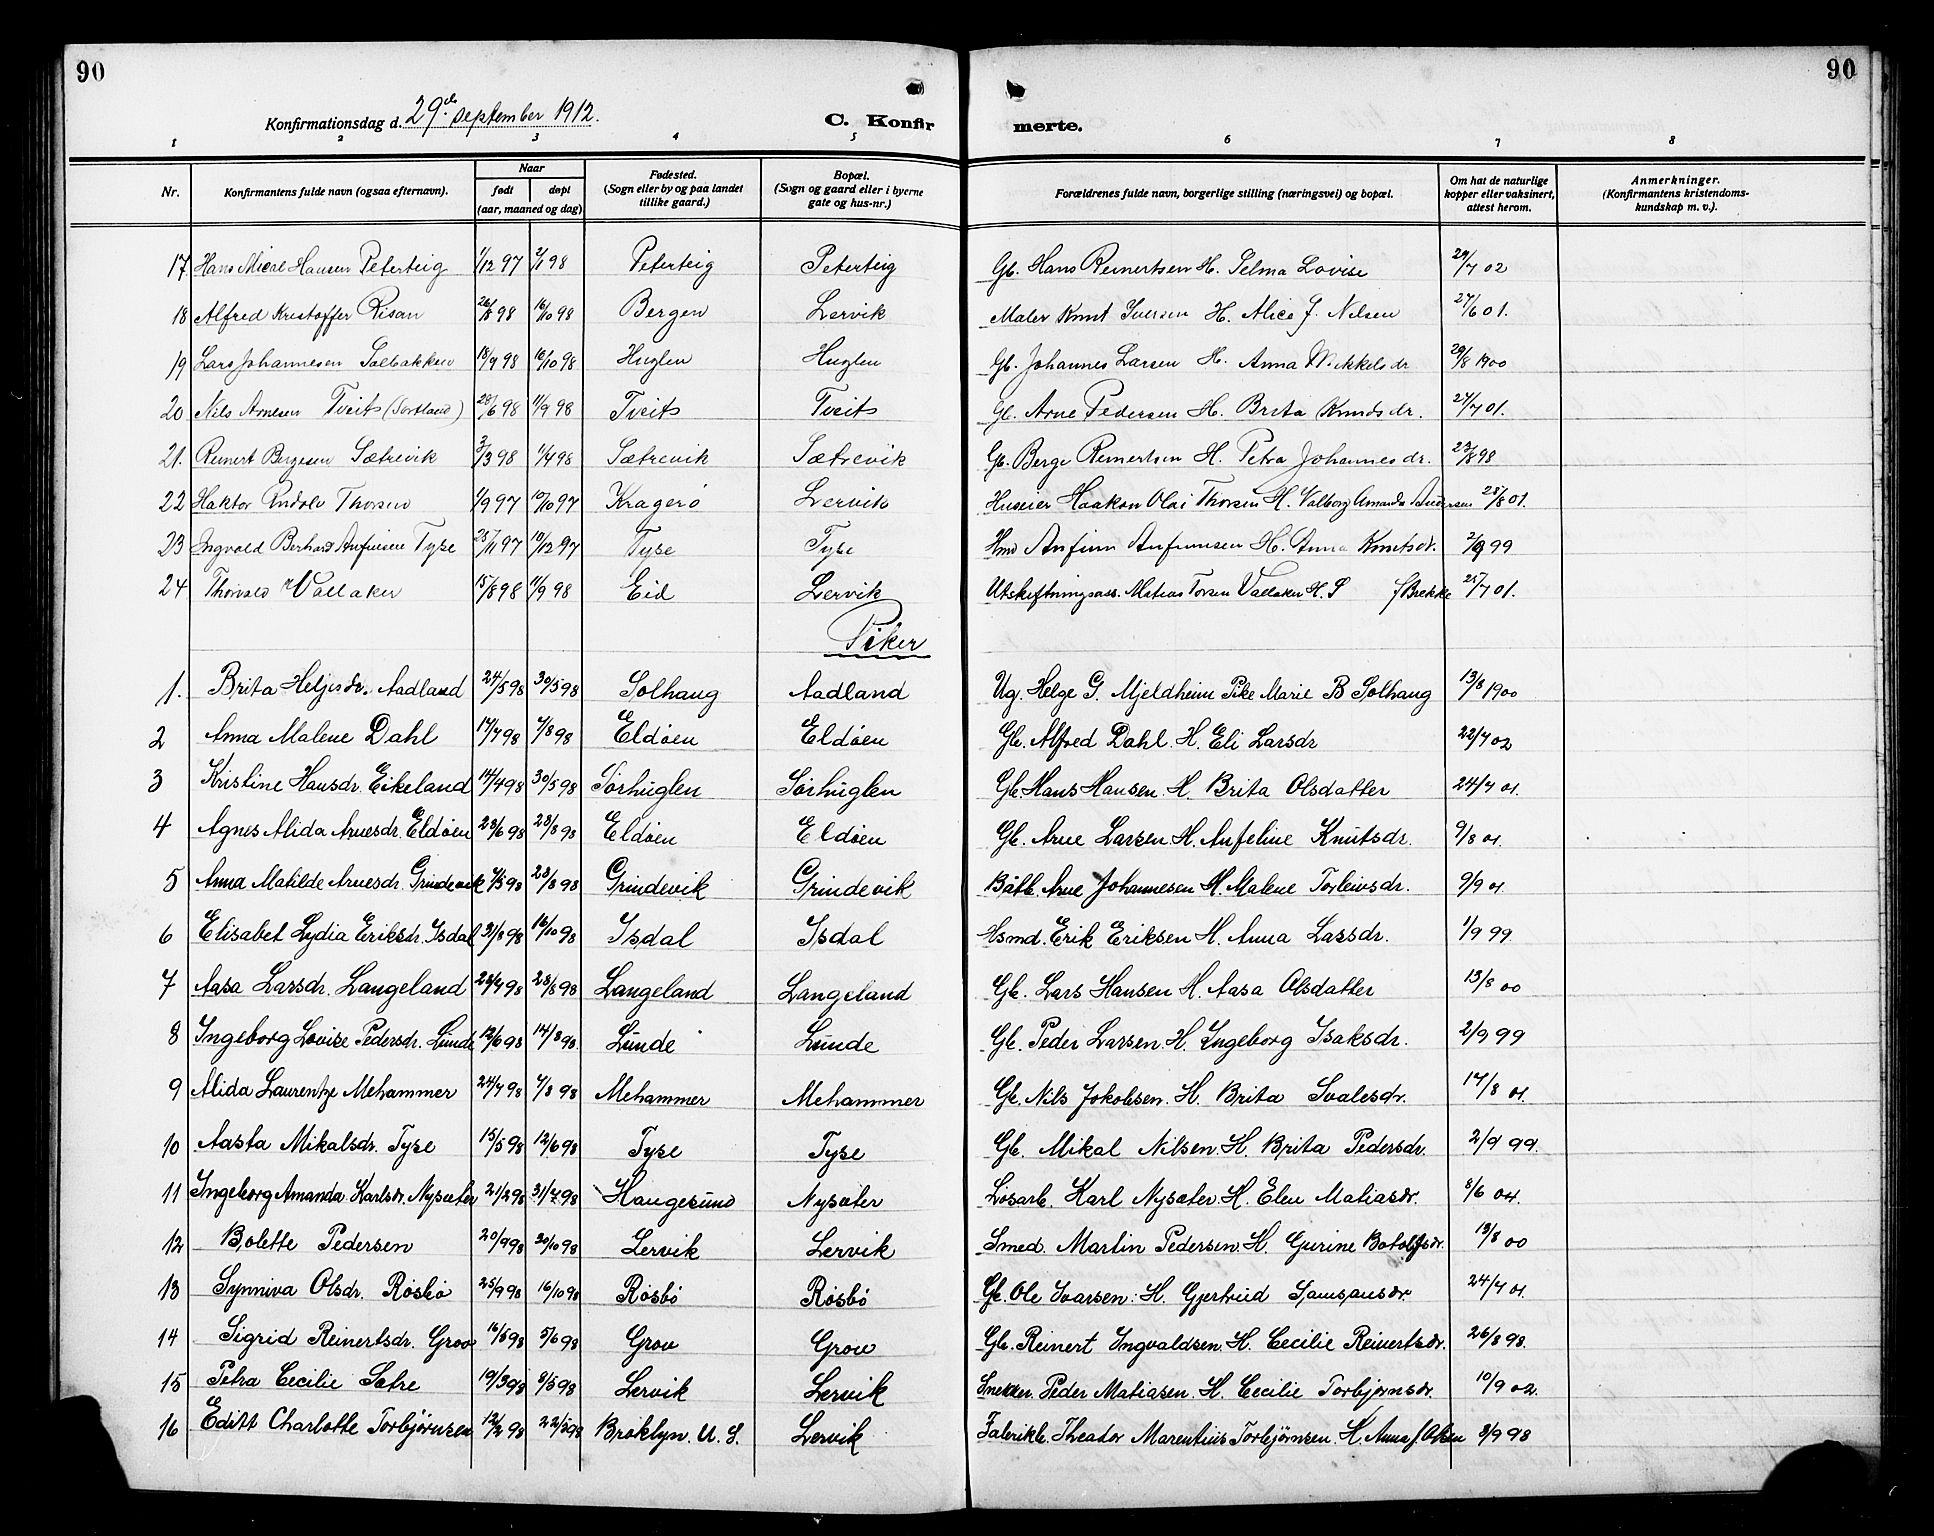 90
90
Konfirmationsdag d. 29de september 1912.
C. Konfir merte.
1 2 3 4 5 6 7 8
Nr. Konfirmantens fulde navn (ogsaa efternavn). Naar født døpt (aar, maaned og dag) Fødested. (Sogn eller by og paa landet tillike gaard.) Bopæl. (Sogn og gaard eller i byerne gate og hus-nr.) Forældrenes fulde navn, borgerlige stilling (næringsvei) og bopæl. Om hat de naturlige kopper eller vaksinert, attest herom. Anmerkninger. (Konfirmantens kristendomskundskap m. v.).
17 Hans Micael Hansen Peterteig 1/12 97 2/1 98 Peterteig Peterteig Gb. Hans Reinertsen H. Selma Lovise 29/7 02
18 Alfred Kristoffer Risan 26/8 98 16/10 98 Bergen Lervik Maler Knut Iversen H. Alice J. Nilsen 27/6 01.
19 Lars Johannesen Solbakken 18/9 98 16/10 98 Huglen Huglen Gb. Johannes Larsen H. Anna Mikkelsdr 29/8 1900
20 Nils Arnesen Tveit (Sortland) 28/6 98 11/9 98 Tveit Tveit Gb. Arne Pedersen H. Brita Knudsdr. 27/7 01.
21. Reinert Bergesen Sætrevik 3/3 98 11/4 98 Sætrevik Sætrevik Gb. Berge Reinertsen H. Petra Johannesdr. 23/8 98
22 Haktor Rudolv Thorsen 1/9 97 10/10 97 Kragerø Lervik Huseier Haakon Olai Thorsen H. Valborg Amanda Andersen 28/8 01.
23 Ingvald Berhard Anfinsen Tyse 25/11 97 19/12 97 Tyse Tyse Hmd Anfinn Anfinnsen H. Anna Knutsdr. 2/9 99
24 Thorvald Vallaker 15/8 98 11/9 98 Eid Lervik Utskiftningsass. Matias Torsen Vallaker H. S f Brekke 25/7 01.
Piker
1. Brita Heljesdr. Aadland 24/5 98 30/5 98 Solhaug Aadland Ug. Helge G. Mjeldheim Pike Marie B Solhaug 13/8 1900
2 Anna Malene Dahl 14/7 98 7/8 98 Eldøen Eldøen Gb. Alfred Dahl. H. Eli Larsdr 22/7 02
3 Kristine Hansdr. Eikeland 14/4 98 30/5 98 Sørhuglen Sørhuglen Gb. Hans Hansen. H. Brita Olsdatter 24/7 01.
4 Agnes Alida Arnesdr. Eldøen 28/6 98 28/8 98 Eldøen Eldøen Gb. Arne Larsen. H. Anfeline Knutsdr. 9/8 01.
5 Anna Matilde Arnesdr. Grindevik 7/5 98 28/8 98 Grindevik Grindevik Båtb. Arne Johannesen H. Malene Torleivsdr. 9/9 01
6 Elisabet Lydia Eriksdr. Isdal 31/8 98 16/10 98 Isdal Isdal Hsmd. Erik Eriksen H. Anna Larsdr. 1/9 99
7 Aasa Larsdr. Langeland 28/7 98 28/8 98 Langeland Langeland Gb. Lars Hansen H. Aasa Olsdatter 13/8 00
8 Ingeborg Lovise Pedersdr. Lunde 12/6 98 14/8 98. Lunde Lunde Gb. Peder Larsen. H. Ingeborg Isaksdr. 2/9 99
9 Alida Laurentze Mehammer 24/7 98 7/8 98 Mehammer Mehammer Gb. Nils Jokobsen. H. Brita Ivalesdr. 14/8 01.
10 Aasta Mikalsdr. Tyse 15/5 98 12/6 98 Tyse Tyse Gb. Mikal Nilsen. H. Brita Pedersdr. 2/9 99.
11 Ingeborg Amanda Karlsdr. Nysæter 21/2 98 31/7 98 Haugesund Nysæter Løsarb. Karl Nysæter. H. Elen Matiasdr. 8/6 04.
12 Bolette Pedersen 20/9 98 30/10 98 Lervik Lervik Smed. Martin Pedersen. H. Gurine Botolfsdr. 13/8 00
13 Synniva Olsdr. Røsbø 25/9 98 16/10 98 Røsbø Røsbø Gb. Ole Ivarsen. H. Gjertrud Samsonsdr. 24/7 01.
14 Sigrid Reinertsdr. Grov 16/5 98 5/6 98 Grov Grov Gb. Reinert Ingvaldsen. H. Cecilie Reinertsdr. 26/8 98.
15 Petra Cecilie Sætre 19/3 98 8/5 98 Lervik Lervik Snekker. Peder Matiasen. H. Cecilie Torbjørnsdr. 10/9 02.
16 Editt Charlotte Torbjørnsen 12/2 98 22/5 98 Broklyn. U. S. Lervik Fabrikb. Theador Marentius Torbjørnsen. H. Anna J. Olsen 8/9 98